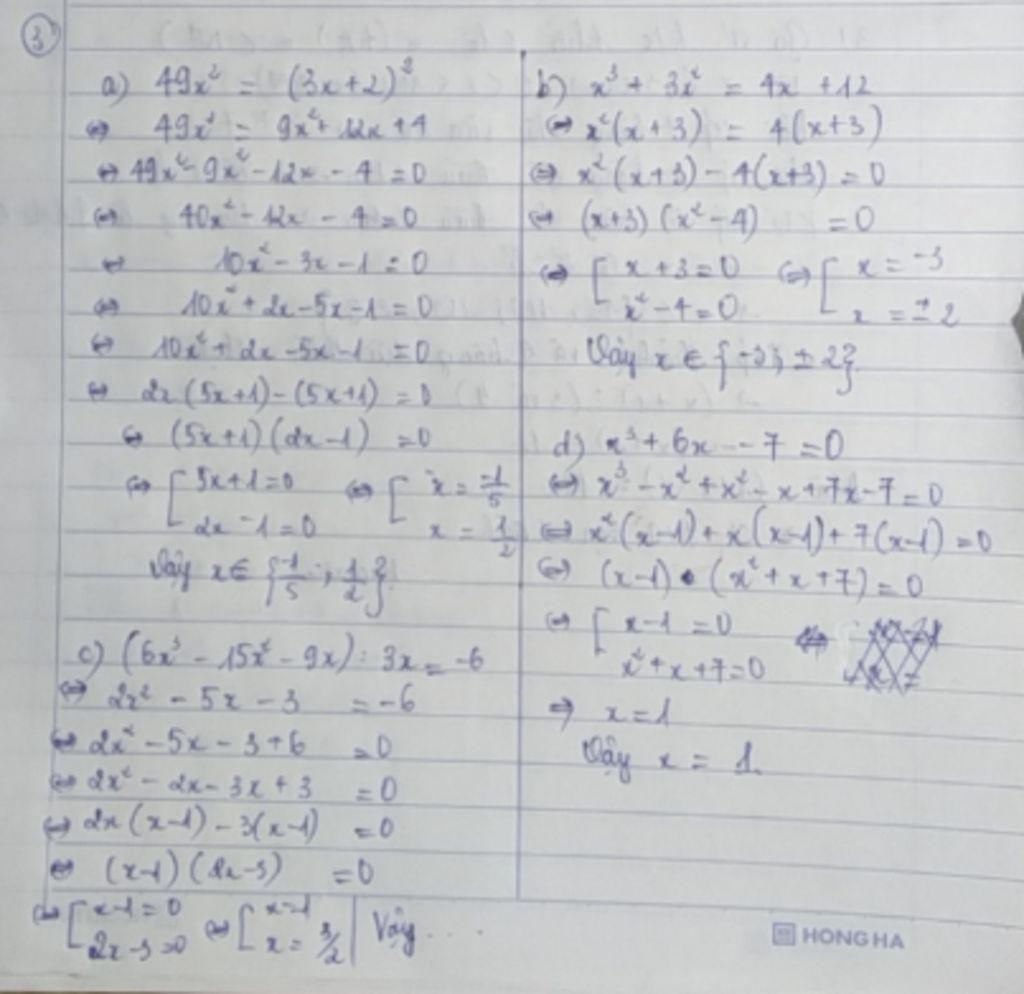 3
a) 49x² = (3x+2)²
⇔ 49x² = 9x² + 12x + 4
⇔ 49x² - 9x² - 12x - 4 = 0
⇔ 40x² - 12x - 4 = 0
⇔ 10x² - 3x - 1 = 0
⇔ 10x² + 2x - 5x - 1 = 0
⇔ 10x² + 2x - 5x - 1 = 0
⇔ 2x(5x+1) - (5x+1) = 0
⇔ (5x+1)(2x-1) = 0
⇔ [ 5x+1=0 ⇔ [ x = -1/5
2x-1=0 x = 1/2
Vậy x ∈ {-1/5 ; 1/2}
c) (6x³ - 15x² - 9x) : 3x = -6
⇔ 2x² - 5x - 3 = -6
⇔ 2x² - 5x - 3 + 6 = 0
⇔ 2x² - 2x - 3x + 3 = 0
⇔ 2x(x-1) - 3(x-1) = 0
⇔ (x-1)(2x-3) = 0
⇔ [ x-1=0 ⇔ [ x=1 | Vậy ....
2x-3=0 x = 3/2
b) x³ + 3x² = 4x + 12
⇔ x²(x+3) = 4(x+3)
⇔ x²(x+3) - 4(x+3) = 0
⇔ (x+3)(x²-4) = 0
⇔ [ x+3=0 ⇔ [ x = -3
x²-4=0 x = ±2
Vậy x ∈ {-3; ±2}
d) x³ + 6x - - 7 = 0
⇔ x³ - x² + x² - x + 7x - 7 = 0
⇔ x²(x-1) + x(x-1) + 7(x-1) = 0
⇔ (x-1) • (x² + x + 7) = 0
⇔ [ x-1=0
x²+x+7=0
⇒ x=1
Vậy x = 1
HONG HA